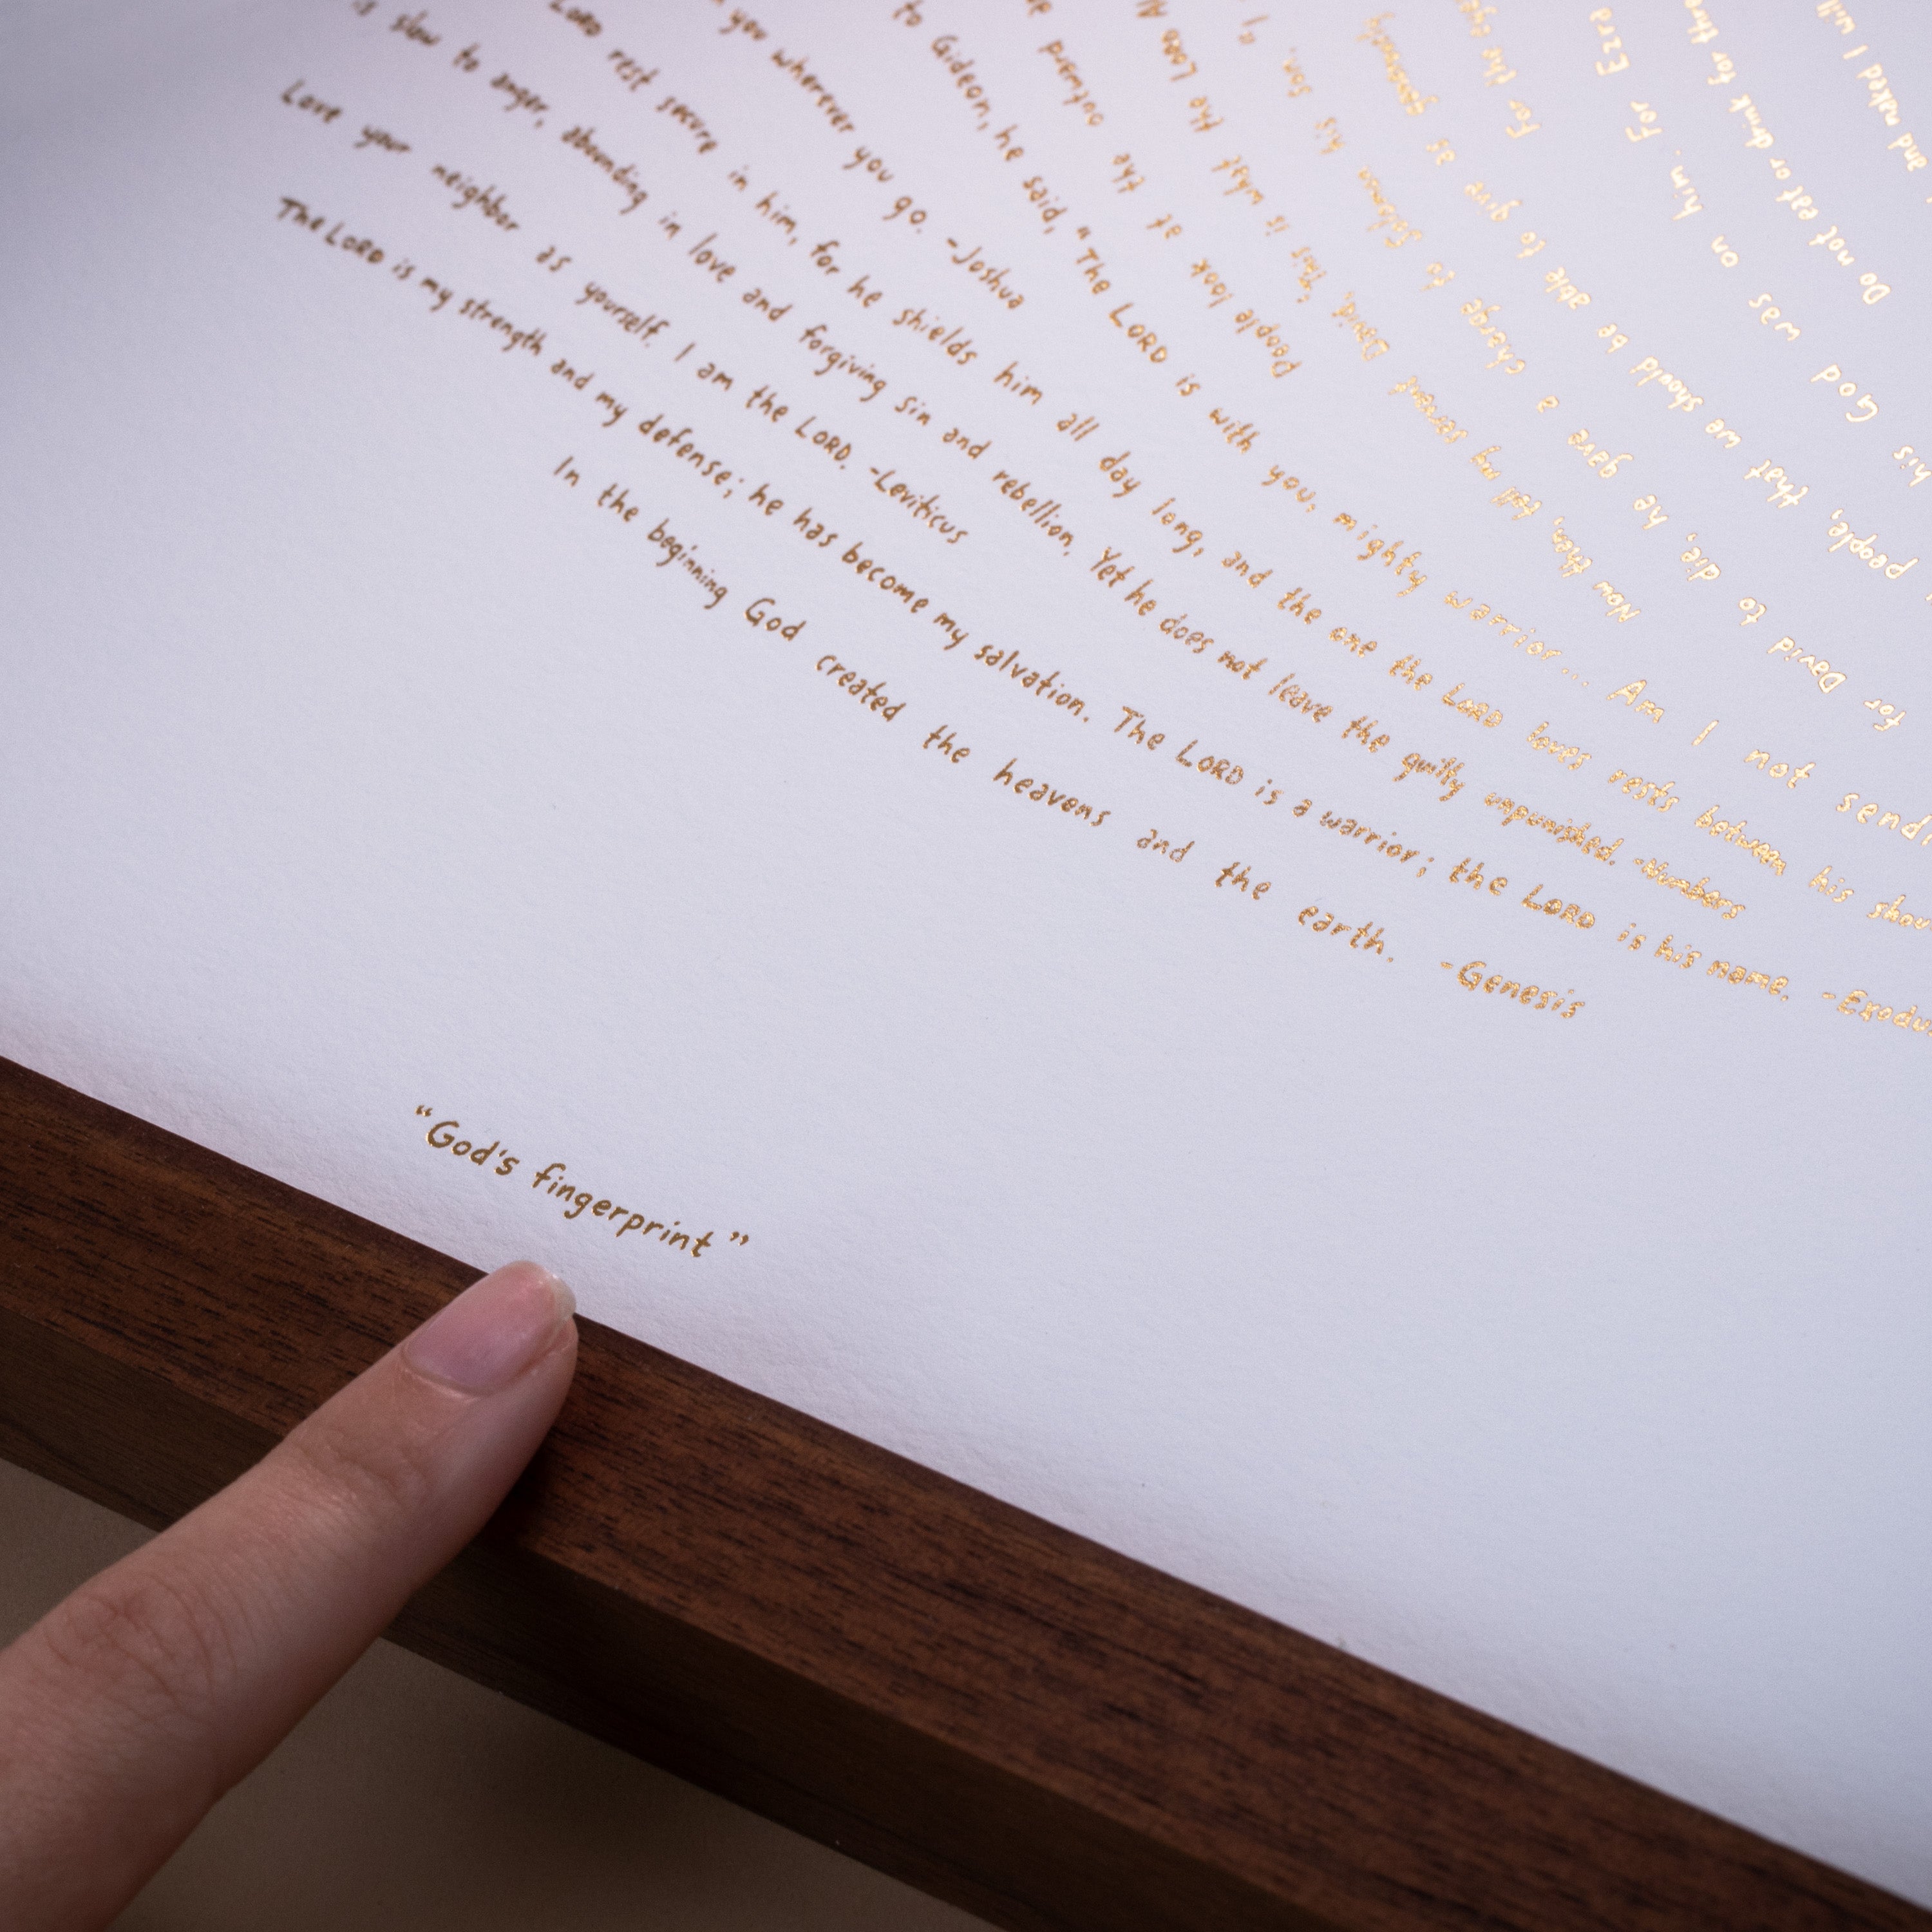 is slow to anger, abounding in love and forgiving sin and rebellion. Yet he does not leave the guilty unpunished. -Numbers
Love your neighbor as yourself. I am the LORD. -Leviticus
The LORD is my strength and my defense; he has become my salvation. The LORD is a warrior; the LORD is his name. -Exodus
In the beginning God created the heavens and the earth. -Genesis
LORD rest secure in him, for he shields him all day long, and the one the LORD loves rests between his
you wherever you go. -Joshua
to Gideon, he said, "The LORD is with you, mighty warrior... Am I not
People look at the outward
Now then, tell my servant David, 'this is what the LORD
for David to die, he gave a charge to Solomon his son. "I
people, that we should be able to give as generously
his God was on him. For Ezra
For the
Do not eat or drink for
and naked I will
"God's fingerprint"